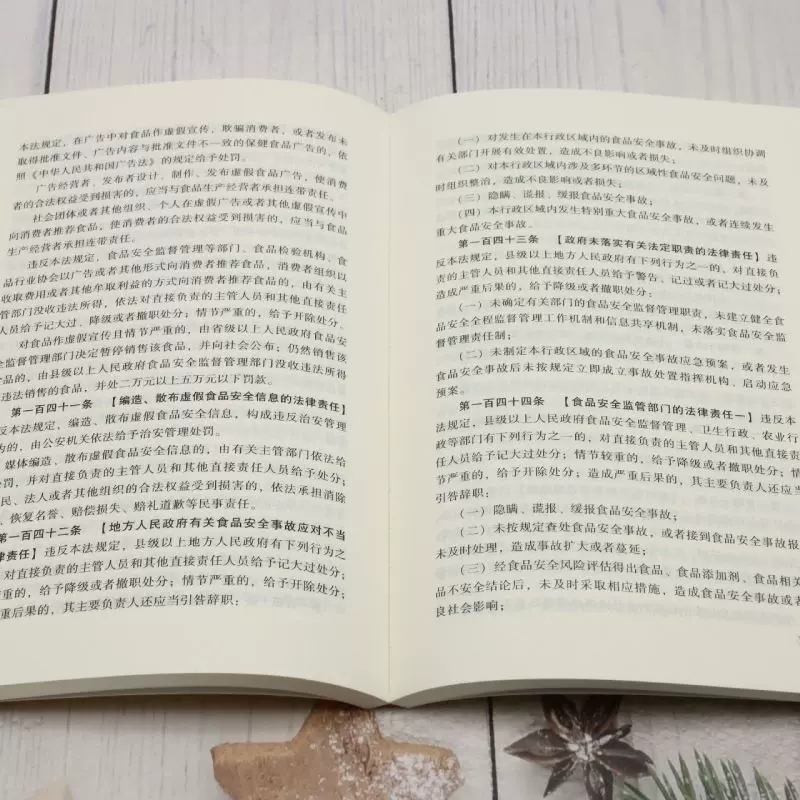 本法规定，在广告中对食品作虚假宣传，欺骗消费者，或者发布未
取得批准文件、广告内容与批准文件不一致的保健食品广告的，依
照《中华人民共和国广告法》的规定给予处罚。
广告经营者、发布者设计、制作、发布虚假食品广告，使消费
者的合法权益受到损害的，应当与食品生产经营者承担连带责任。
社会团体或者其他组织、个人在虚假广告或者其他虚假宣传中
向消费者推荐食品，使消费者的合法权益受到损害的，应当与食品
生产经营者承担连带责任。
违反本法规定，食品安全监督管理等部门、食品检验机构、食
品行业协会以广告或者其他形式向消费者推荐食品，消费者组织以
收取费用或者其他牟取利益的方式向消费者推荐食品的，由有关主
管部门没收违法所得，依法对直接负责的主管人员和其他直接责任
人员给予记大过、降级或者撤职处分；情节严重的，给予开除处分。
对食品作虚假宣传且情节严重的，由省级以上人民政府食品安
全监督管理部门决定暂停销售该食品，并向社会公布；仍然销售该
食品的，由县级以上人民政府食品安全监督管理部门没收违法所得
违法销售的食品，并处二万元以上五万元以下罚款。
第一百四十一条 【编造、散布虚假食品安全信息的法律责任】
反本法规定，编造、散布虚假食品安全信息，构成违反治安管理
为的，由公安机关依法给予治安管理处罚。
媒体编造、散布虚假食品安全信息的，由有关主管部门依法给
罚，并对直接负责的主管人员和其他直接责任人员给予处分；
民、法人或者其他组织的合法权益受到损害的，依法承担消除
、恢复名誉、赔偿损失、赔礼道歉等民事责任。
第一百四十二条 【地方人民政府有关食品安全事故应对不当
律责任】违反本法规定，县级以上地方人民政府有下列行为之
对直接负责的主管人员和其他直接责任人员给予记大过处分；
重的，给予降级或者撤职处分；情节严重的，给予开除处分；
重后果的，其主要负责人还应当引咎辞职：
（一）对发生在本行政区域内的食品安全事故，未及时组织协调
有关部门开展有效处置，造成不良影响或者损失；
（二）对本行政区域内涉及多环节的区域性食品安全问题，未及
时组织整治，造成不良影响或者损失；
（三）隐瞒、谎报、缓报食品安全事故；
（四）本行政区域内发生特别重大食品安全事故，或者连续发生
重大食品安全事故。
第一百四十三条 【政府未落实有关法定职责的法律责任】违
反本法规定，县级以上地方人民政府有下列行为之一的，对直接负
责的主管人员和其他直接责任人员给予警告、记过或者记大过处分；
造成严重后果的，给予降级或者撤职处分：
（一）未确定有关部门的食品安全监督管理职责，未建立健全食
品安全全程监督管理工作机制和信息共享机制，未落实食品安全监
督管理责任制；
（二）未制定本行政区域的食品安全事故应急预案，或者发生食
品安全事故后未按规定立即成立事故处置指挥机构、启动应急
预案。
第一百四十四条 【食品安全监管部门的法律责任一】违反本
法规定，县级以上人民政府食品安全监督管理、卫生行政、农业行
政等部门有下列行为之一的，对直接负责的主管人员和其他直接责
任人员给予记大过处分；情节较重的，给予降级或者撤职处分；情
节严重的，给予开除处分；造成严重后果的，其主要负责人还应当
引咎辞职：
（一）隐瞒、谎报、缓报食品安全事故；
（二）未按规定查处食品安全事故，或者接到食品安全事故报
未及时处理，造成事故扩大或者蔓延；
（三）经食品安全风险评估得出食品、食品添加剂、食品相关
品不安全结论后，未及时采取相应措施，造成食品安全事故或者
良社会影响；